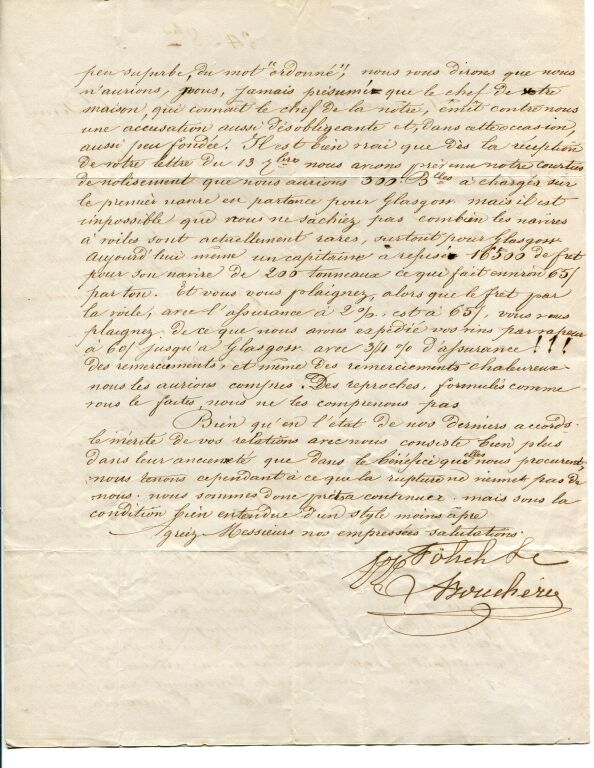 peu superbe, du mot "ordonné", nous vous dirons que nous
n'aurions, nous, jamais présumé que le chef de votre
maison, qui connait le chef de la nôtre, émit contre nous
une accusation aussi désobligeante et, dans cette occasion,
aussi peu fondée. Il est bien vrai que dès la réception
de votre lettre du 13 7bre nous avons prévenu notre courtier
de nolisement que nous aurions 300 Blles à charger sur
le premier navire en partance pour Glasgow mais il est
impossible que vous ne sachiez pas combien les navires
à voiles sont actuellement rares, surtout pour Glasgow
Aujourd'hui même un capitaine a refusé 16500 de fret
pour son navire de 200 tonneaux ce que fait environ 65/
par ton. Et vous vous plaignez, alors que le fret par
la voile, avec l'assurance à 2%, est à 65/, vous vous
plaignez de ce que nous avons expédié vos vins par vapeur
à 60/ jusqu'à Glasgow avec 3/4 % d'assurance !!!
Des remerciements, et même des remerciements chaleureux
nous les aurions compris. Des reproches, formulés comme
vous le faites, nous ne les comprenons pas
Bien qu'en l'état de nos derniers accords
le mérite de vos relations avec nous consiste bien plus
dans leur ancienneté que dans le bénéfice qu'elles nous procurent,
nous tenons cependant à ce que la rupture ne vienne pas de
nous. nous sommes donc prêts a continuer. mais sous la
condition bien entendue d'un style moins âpre
gréez Messieurs nos empressées salutations.